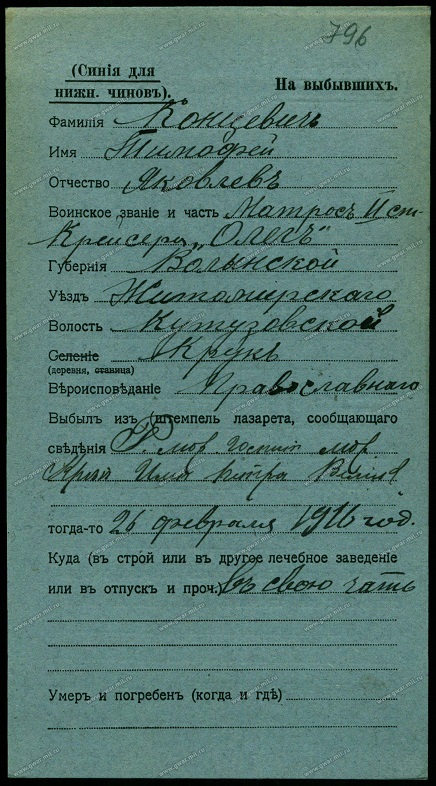 796
(Синія для
нижн. чиновъ).
На выбывшихъ.
Фамилія Концевичъ
Имя Тимофей
Отчество Яковлевъ
Воинское званіе и часть Матросъ II ст.
Крейсера „Олегъ"
Губернія Волынской
Уѣздъ Житомирскаго
Волость Кутузовской
Селеніе Крукъ
(деревня, станица)
Вѣроисповѣданіе Православнаго
Выбылъ изъ (штемпель лазарета, сообщающаго
свѣдѣнія Р. мор. госпит мор
Имп Петра Велик
тогда-то 26 февраля 1916 год.
Куда (въ строй или въ другое лечебное заведеніе
или въ отпускъ и проч.) въ свою чать
Умеръ и погребенъ (когда и гдѣ)
www.gwar.mil.ru